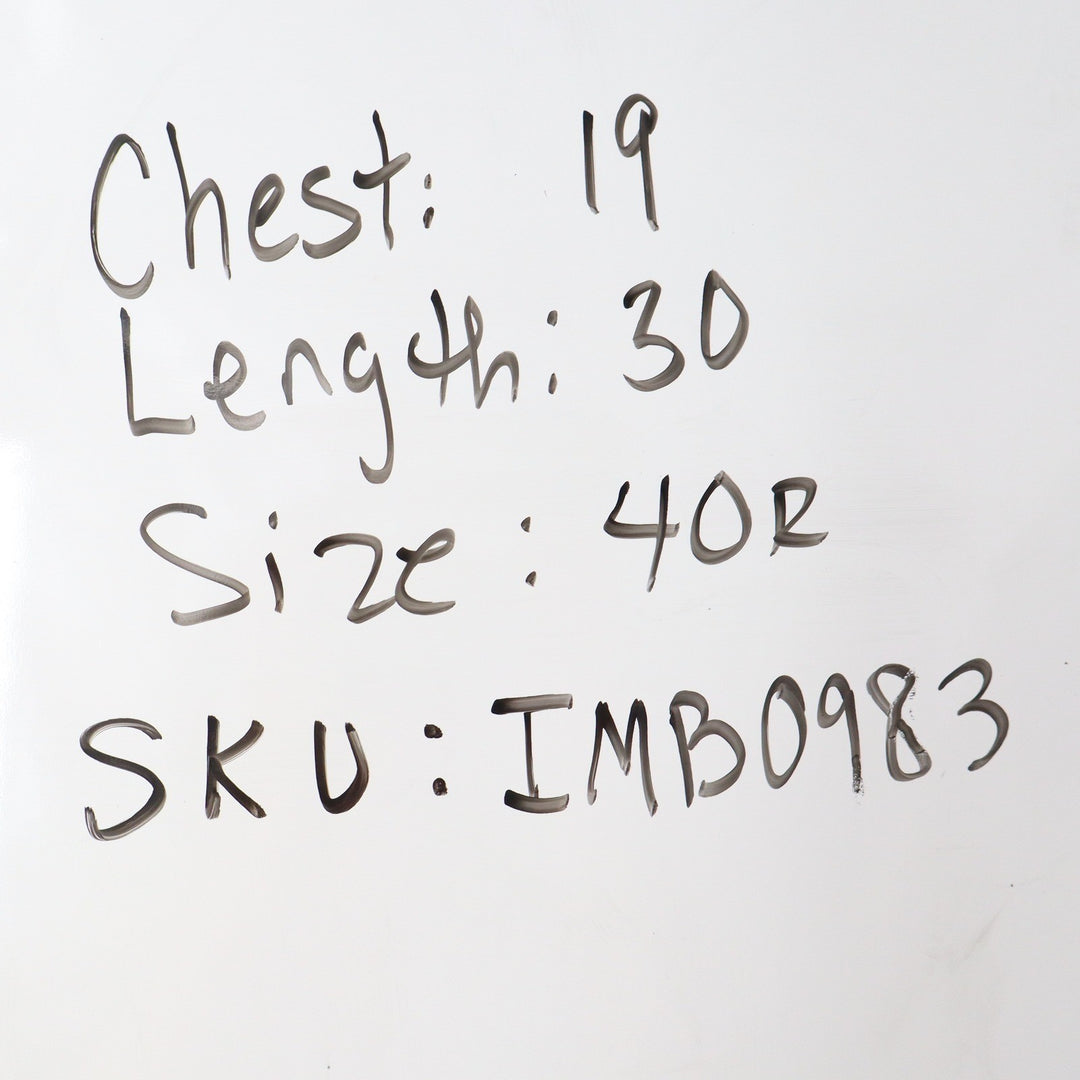 Chest: 19
Length: 30
Size: 40R
SKU: IMB0983